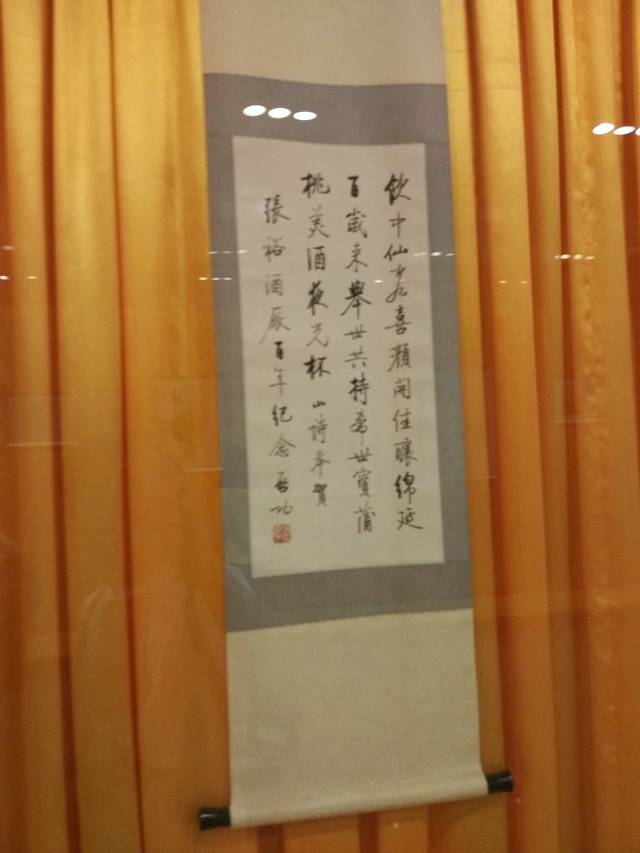 飲中仙喜顏開佳釀綿延
百歲来舉世共持希世寶蒲
桃美酒夜光杯 小詩奉賀
張裕酒厰百年紀念 啓功